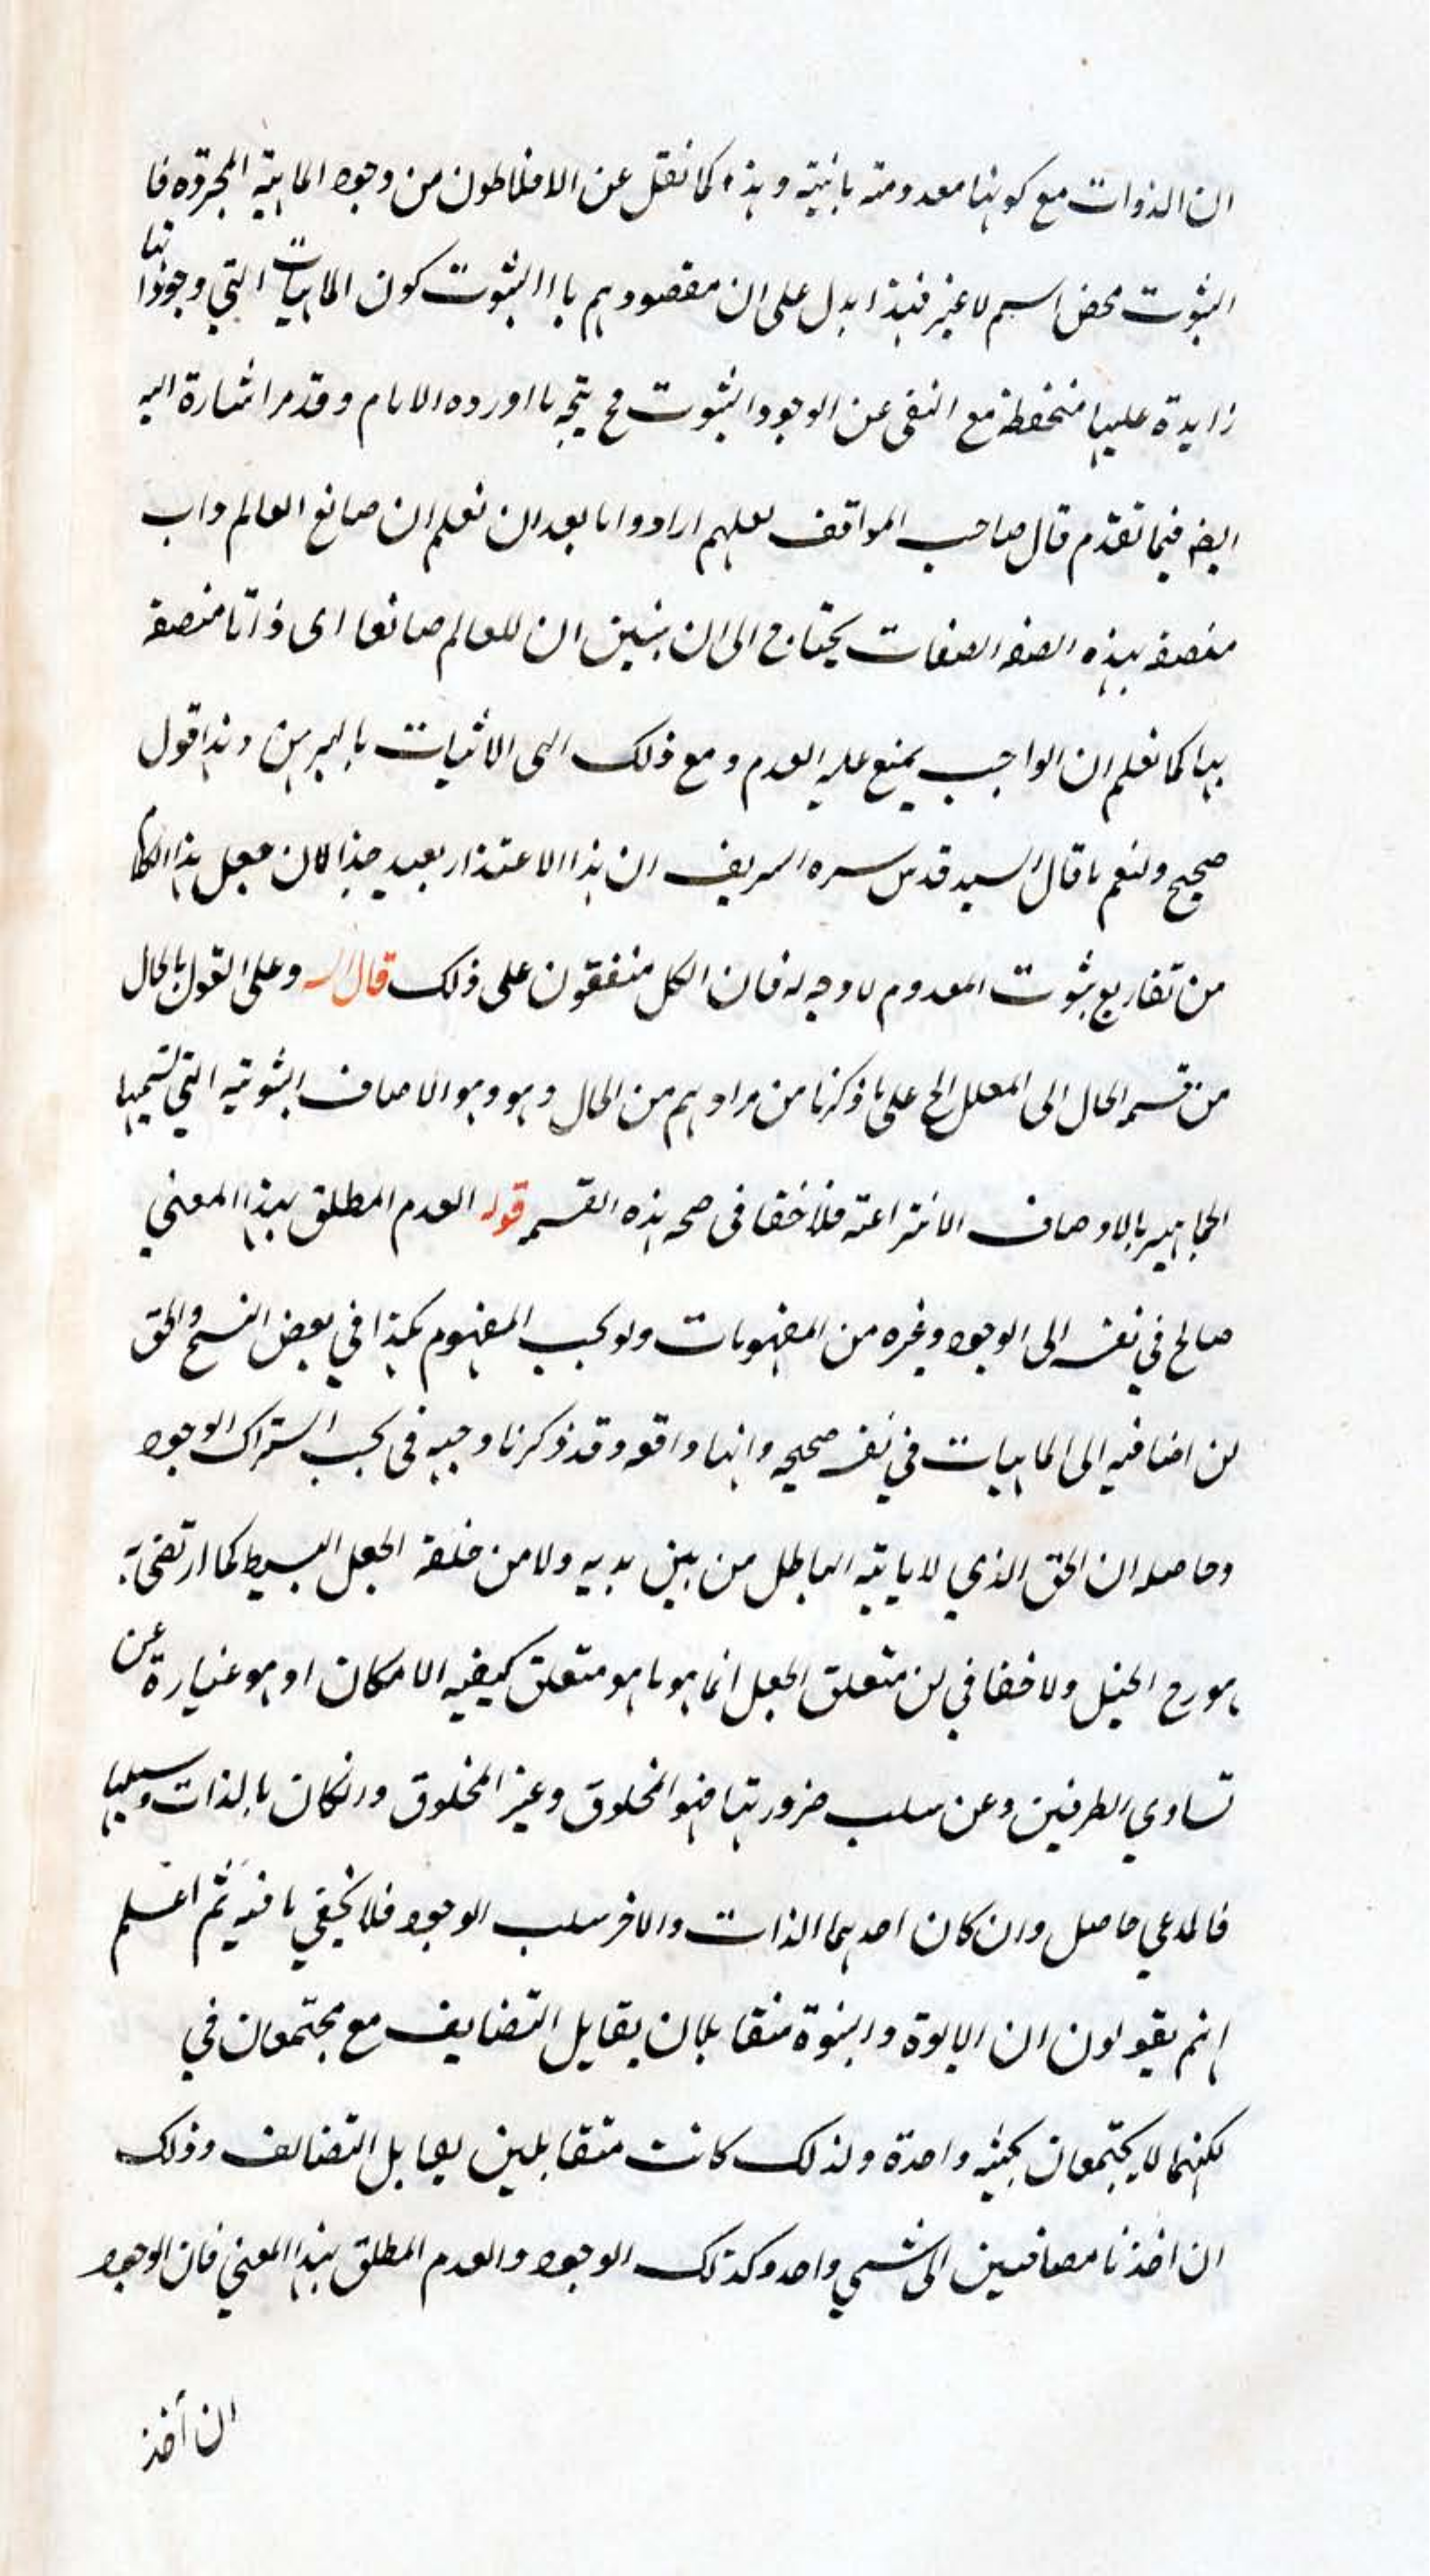 ان الذوات مع كونها معدومة ثابتة وهذه كما نقل عن الافلاطون من وجود الماهية المجردة فا
الثبوت محض اسم لا غير فهذا يدل على ان مقصودهم بالثبوت كون الماهيات التي وجوداتها
زايدة عليها منحفظة مع النفى عن الوجود الثبوت فح يتجه ما اورده الامام وقد مر اشارة اليه
ايضه فيما تقدم قال صاحب المواقف لعلهم ارادوا انا بعد ان نعلم ان صانع العالم ذات
متصفة بهذه الصفه الصفات يحتاج الى ان نبين ان للعالم صانعا اى ذاتا متصفة
بها كما نعلم ان الواجب يمتنع عليه العدم ومع ذلك الى الاثبات بالبرهان وهذا قول
صحيح ولنعم ما قال السيد قدس سره الشريف ان هذا الاعتذار بعيد جدا لان جعل هذا الكلام
من تفاريع ثبوت المعدوم لا وجه له فان الكل متفقون على ذلك قال وعلى القول بالحال
من قسم الحال الى المعلل الخ على ما ذكرنا من مرادهم من الحال وهو وهو الاصاف الثبوتية التي تسميها
الجماهير بالاوصاف الانتزاعية فلا خفا فى صحه هذه القسمه قوله العدم المطلق بهذا المعنى
صالح في نفسه الى الوجود وغيره من المفهومات ولو بحسب المفهوم هكذا في بعض النسخ والحق
ان اضافته الى الماهيات في نفسه صحيحه وانها واقعه وقد ذكرنا وجهه فى بحث اشتراك الوجود
وحاصله ان الحق الذي لا ياتيه الباطل من بين يديه ولا من خلفه الجعل البسيط كما ارتضى به
ولا خفا في ان متعلق الجعل انما هو ما هو متعلق كيفيه الامكان اذ هو عبارة عن
تساوي الطرفين وعن سلب ضرورتها فهو المخلوق وغير المخلوق وان كان بالذات وسلبها
فالمدعي حاصل وان كان احدهما الذات والاخر سلب الوجود فلا يخفي ما فيه ثم اعلم
انهم يقولون ان الابوة والبنوة متقابلان بقابل التضايف مع مجتمعان في
لكنهما لا يجتمعان بحيثيه واحدة ولذلك كانت متقابلين بقابل التضايف وذلك
ان اخذنا مضافين الى شيي واحد وكذلك الوجود والعدم المطلق بهذا المعني فان الوجود
ان أخذ